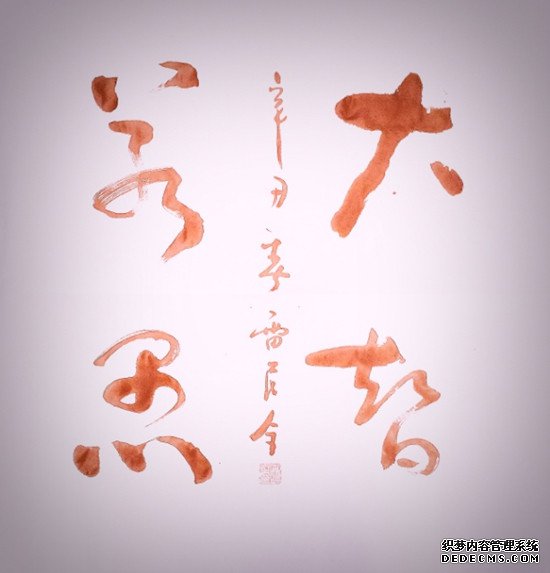 大智
若愚
辛丑春雷全
织梦内容管理系统
DEDECMS.COM